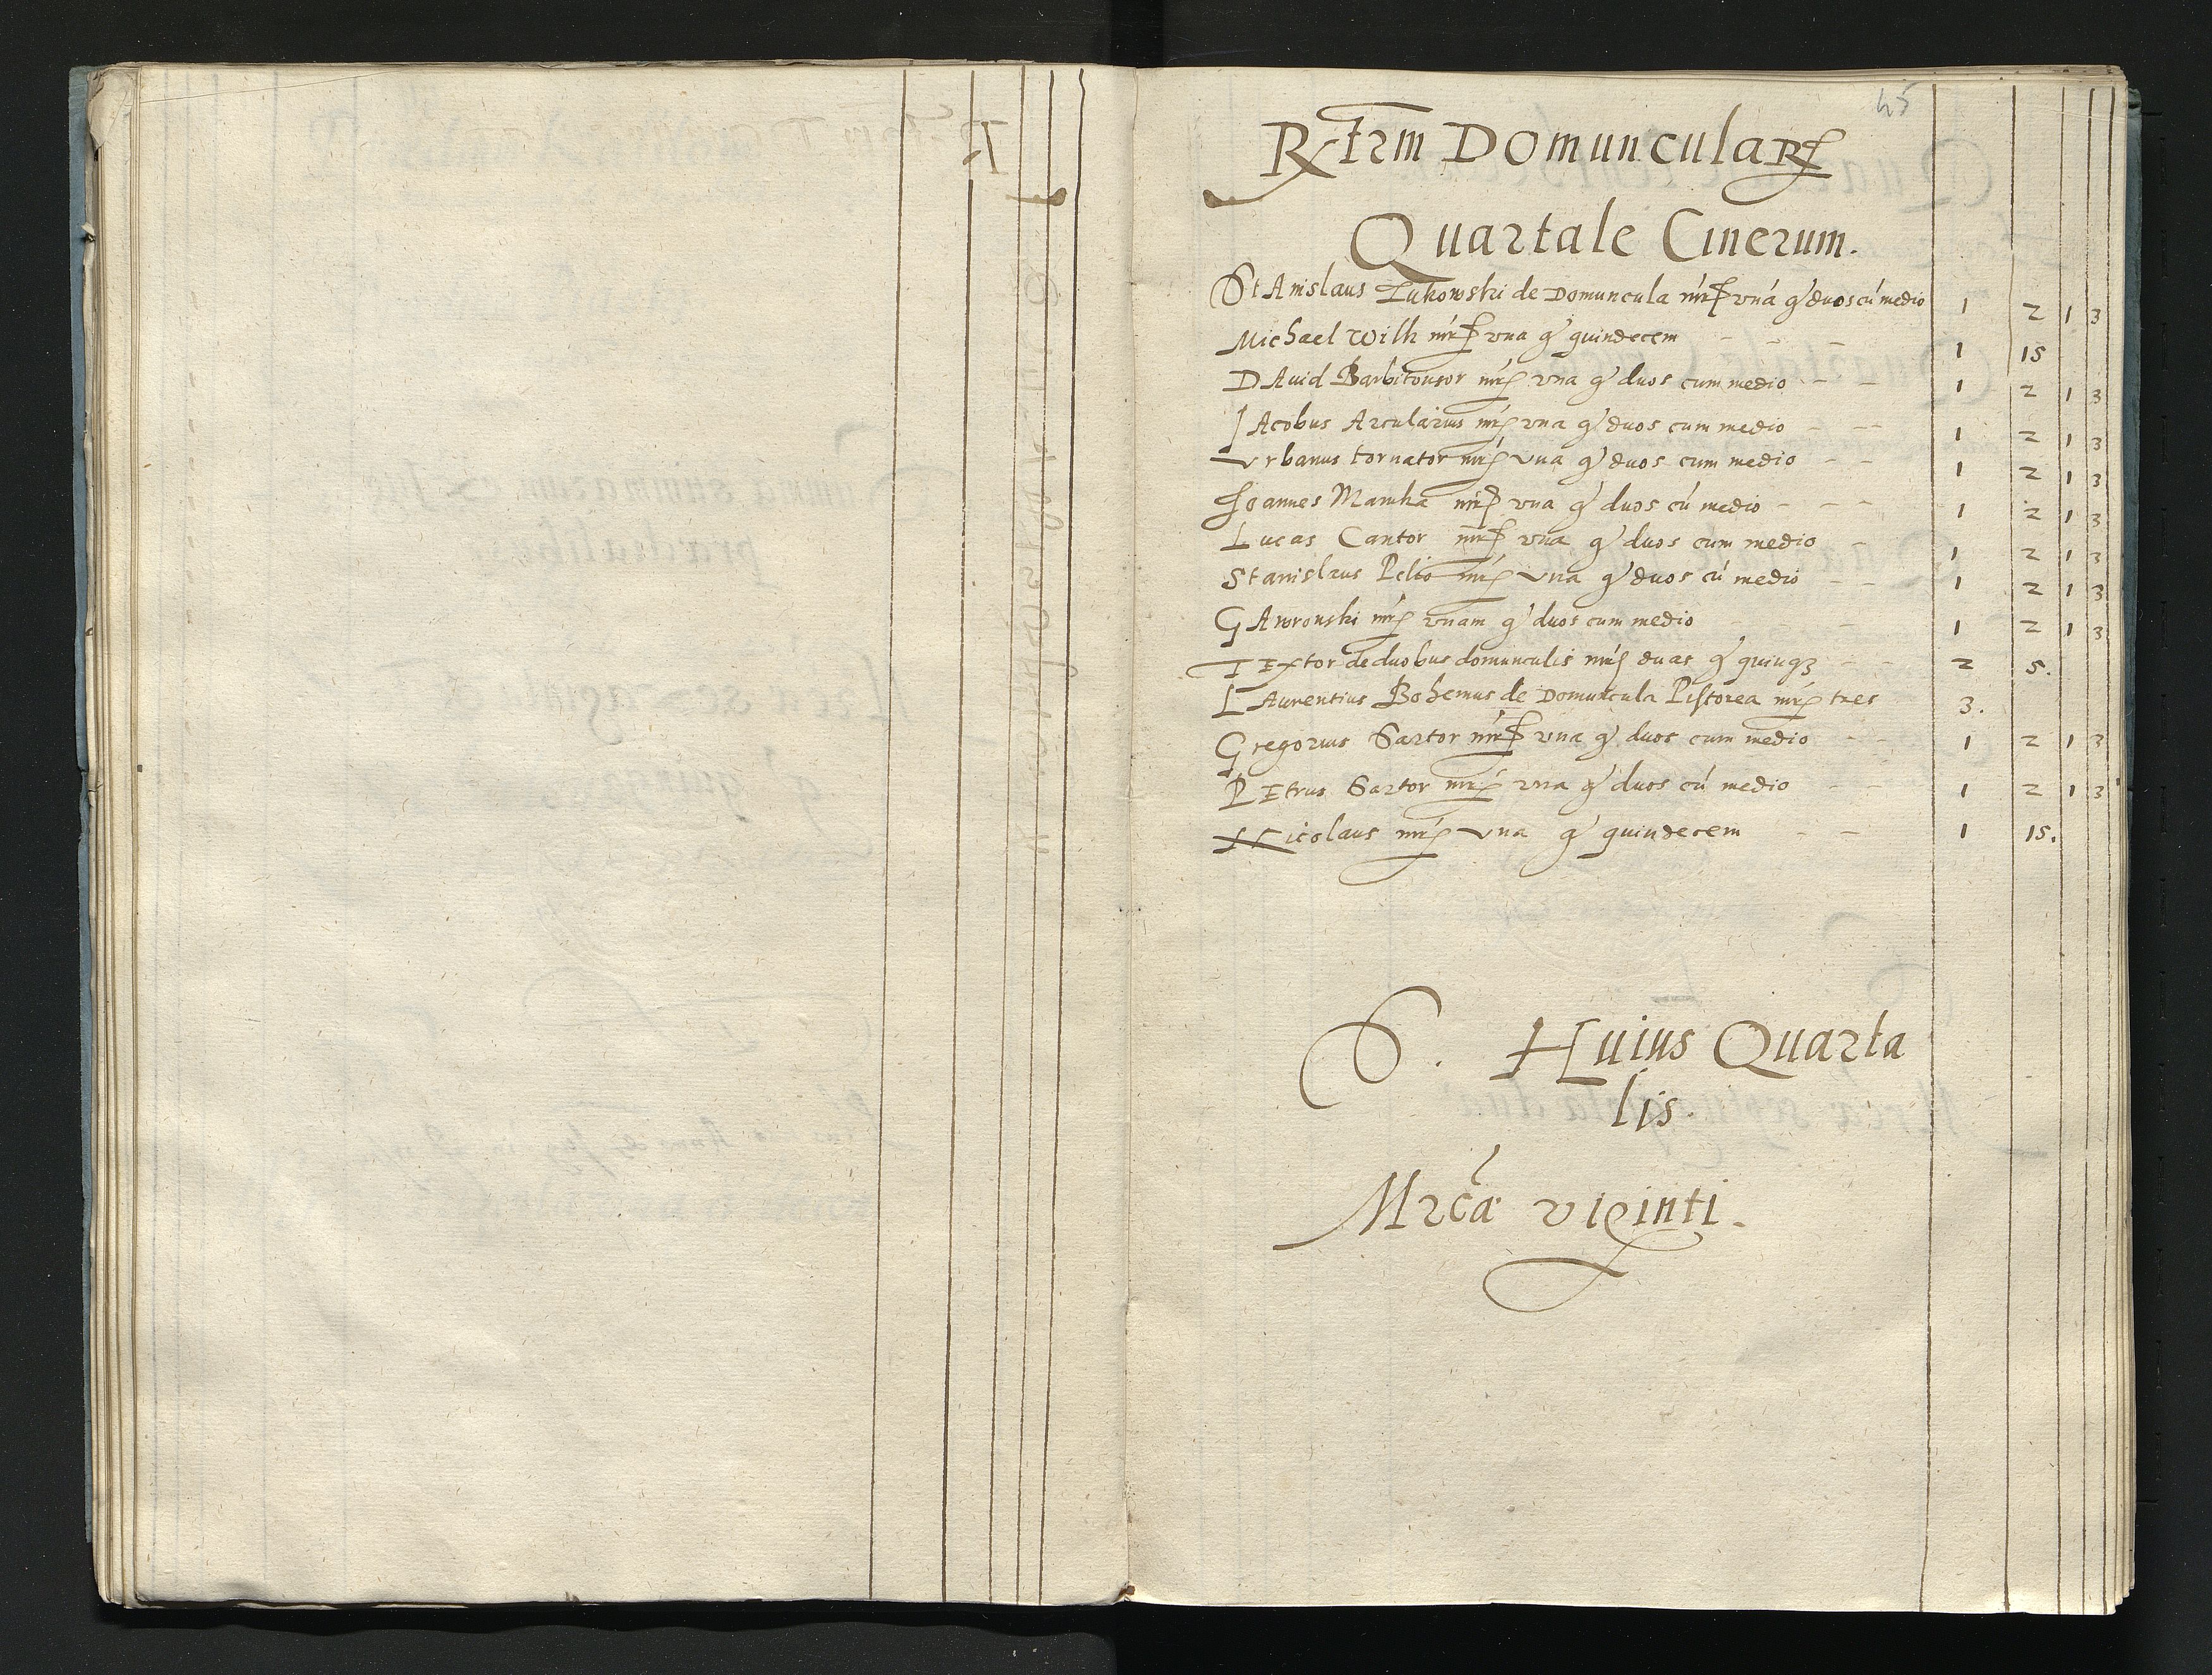 45
Rxtrm Domuncularx
Quartale Cinerum.
StAnislaus Lukowski de Domuncula mrx vná gr duos cú medio 1 2 1 3
Michael Wilk mrx vna gr quindecem - - - 1 15
DAuid Barbitonsor mrx vna gr duos cum medio - - 1 2 1 3
IAcobus Arcularius mrx vna gr duos cum medio - -- 1 2 1 3
Vrbanus tornator mrx vna gr duos cum medio - - 1 2 1 3
Joannes Mamka mrx vna gr duos cú medio - - - 1 2 1 3
Lucas Cantor mrx vna gr duos cum medio - 1 2 1 3
Stanislaus Pelio mrx vna gr duos cú medio - - 1 2 1 3
GAwronski mrx vnam gr duos cum medio - - 1 2 1 3
TExtor de duobus domunculis mrx duas gr quinqz - - 2 5.
LAurentius Bohemus de Domuncula Pistorea mrx tres 3.
Gregorius Sartor mrx vna gr duos cum medio - - 1 2 1 3
PEtrus Sartor mrx vna gr duos cú medio - - 1 2 1 3
Nicolaus mrx vna gr quindecem - - 1 15.
S. Huius Quarta
lis.
Mrcæ viginti.